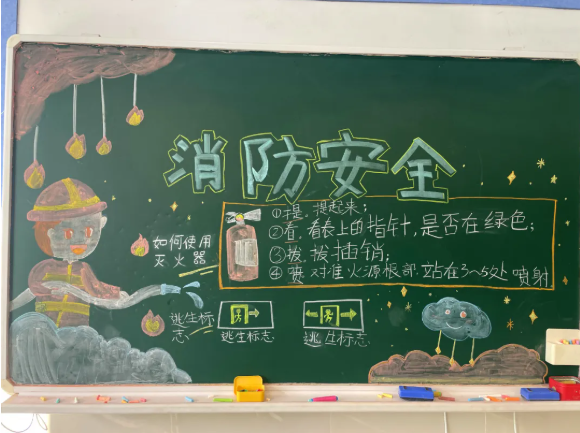 消防安全
①提，提起来；
②看，看表上的指针，是否在绿色；
③拔 拔插销
④ 对准火源根部 站在3~5处 喷射
如何使用
灭火器
逃生标
志
逃生标志
逃生标志